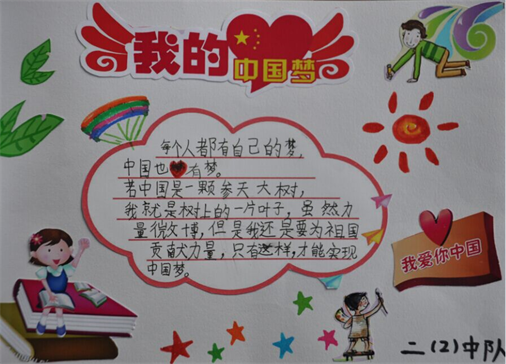 我的
中国梦
每个人都有自己的梦,
中国也有梦。
若中国是一颗参天大树,
我就是树上的一片叶子,虽然力
量微博,但是我还是要为祖国
贡献力量,只有这样,才能实现
中国梦。
我爱你中国
二(2)中队